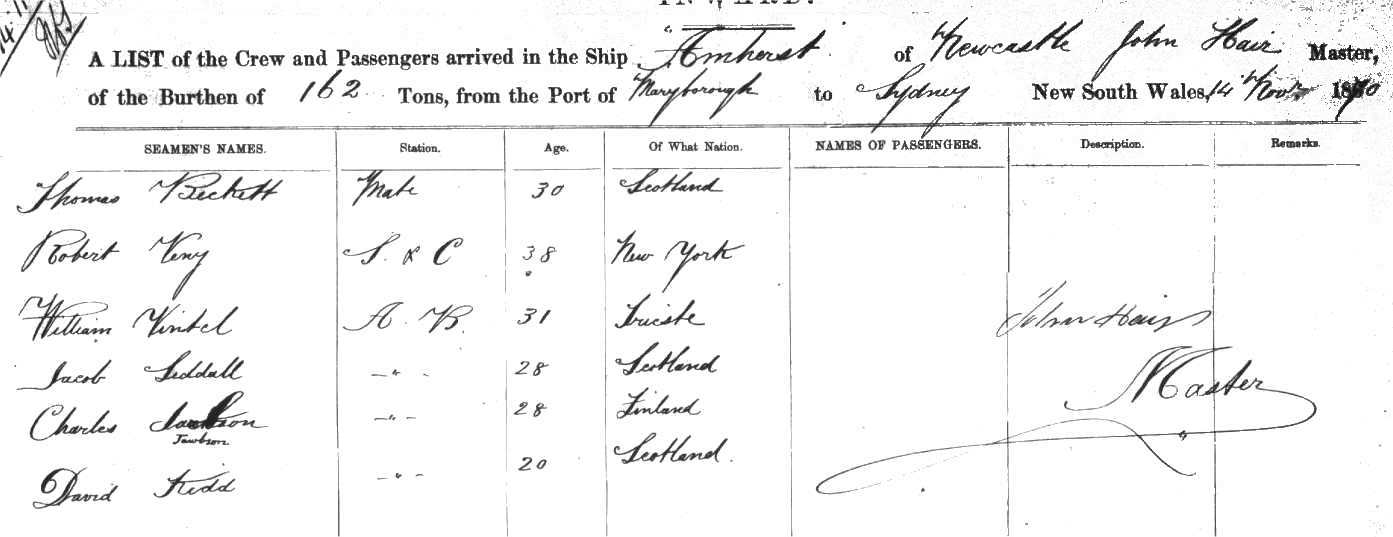 INWARD.
A LIST of the Crew and Passengers arrived in the Ship Amherst of Newcastle John Hair Master,
of the Burthen of 162 Tons, from the Port of Maryborough to Sydney New South Wales, 14 Novr 1870
SEAMEN'S NAMES. Station. Age. Of What Nation. NAMES OF PASSENGERS. Description. Remarks.
Thomas Beckett Mate 30 Scotland
Robert Veny S. & C 38 New York
William Vintel A. B. 31 Trieste
John Hair
Jacob Siddall —"— 28 Scotland
Master
Charles —"— 28 Finland
David Kidd —"— 20 Scotland.